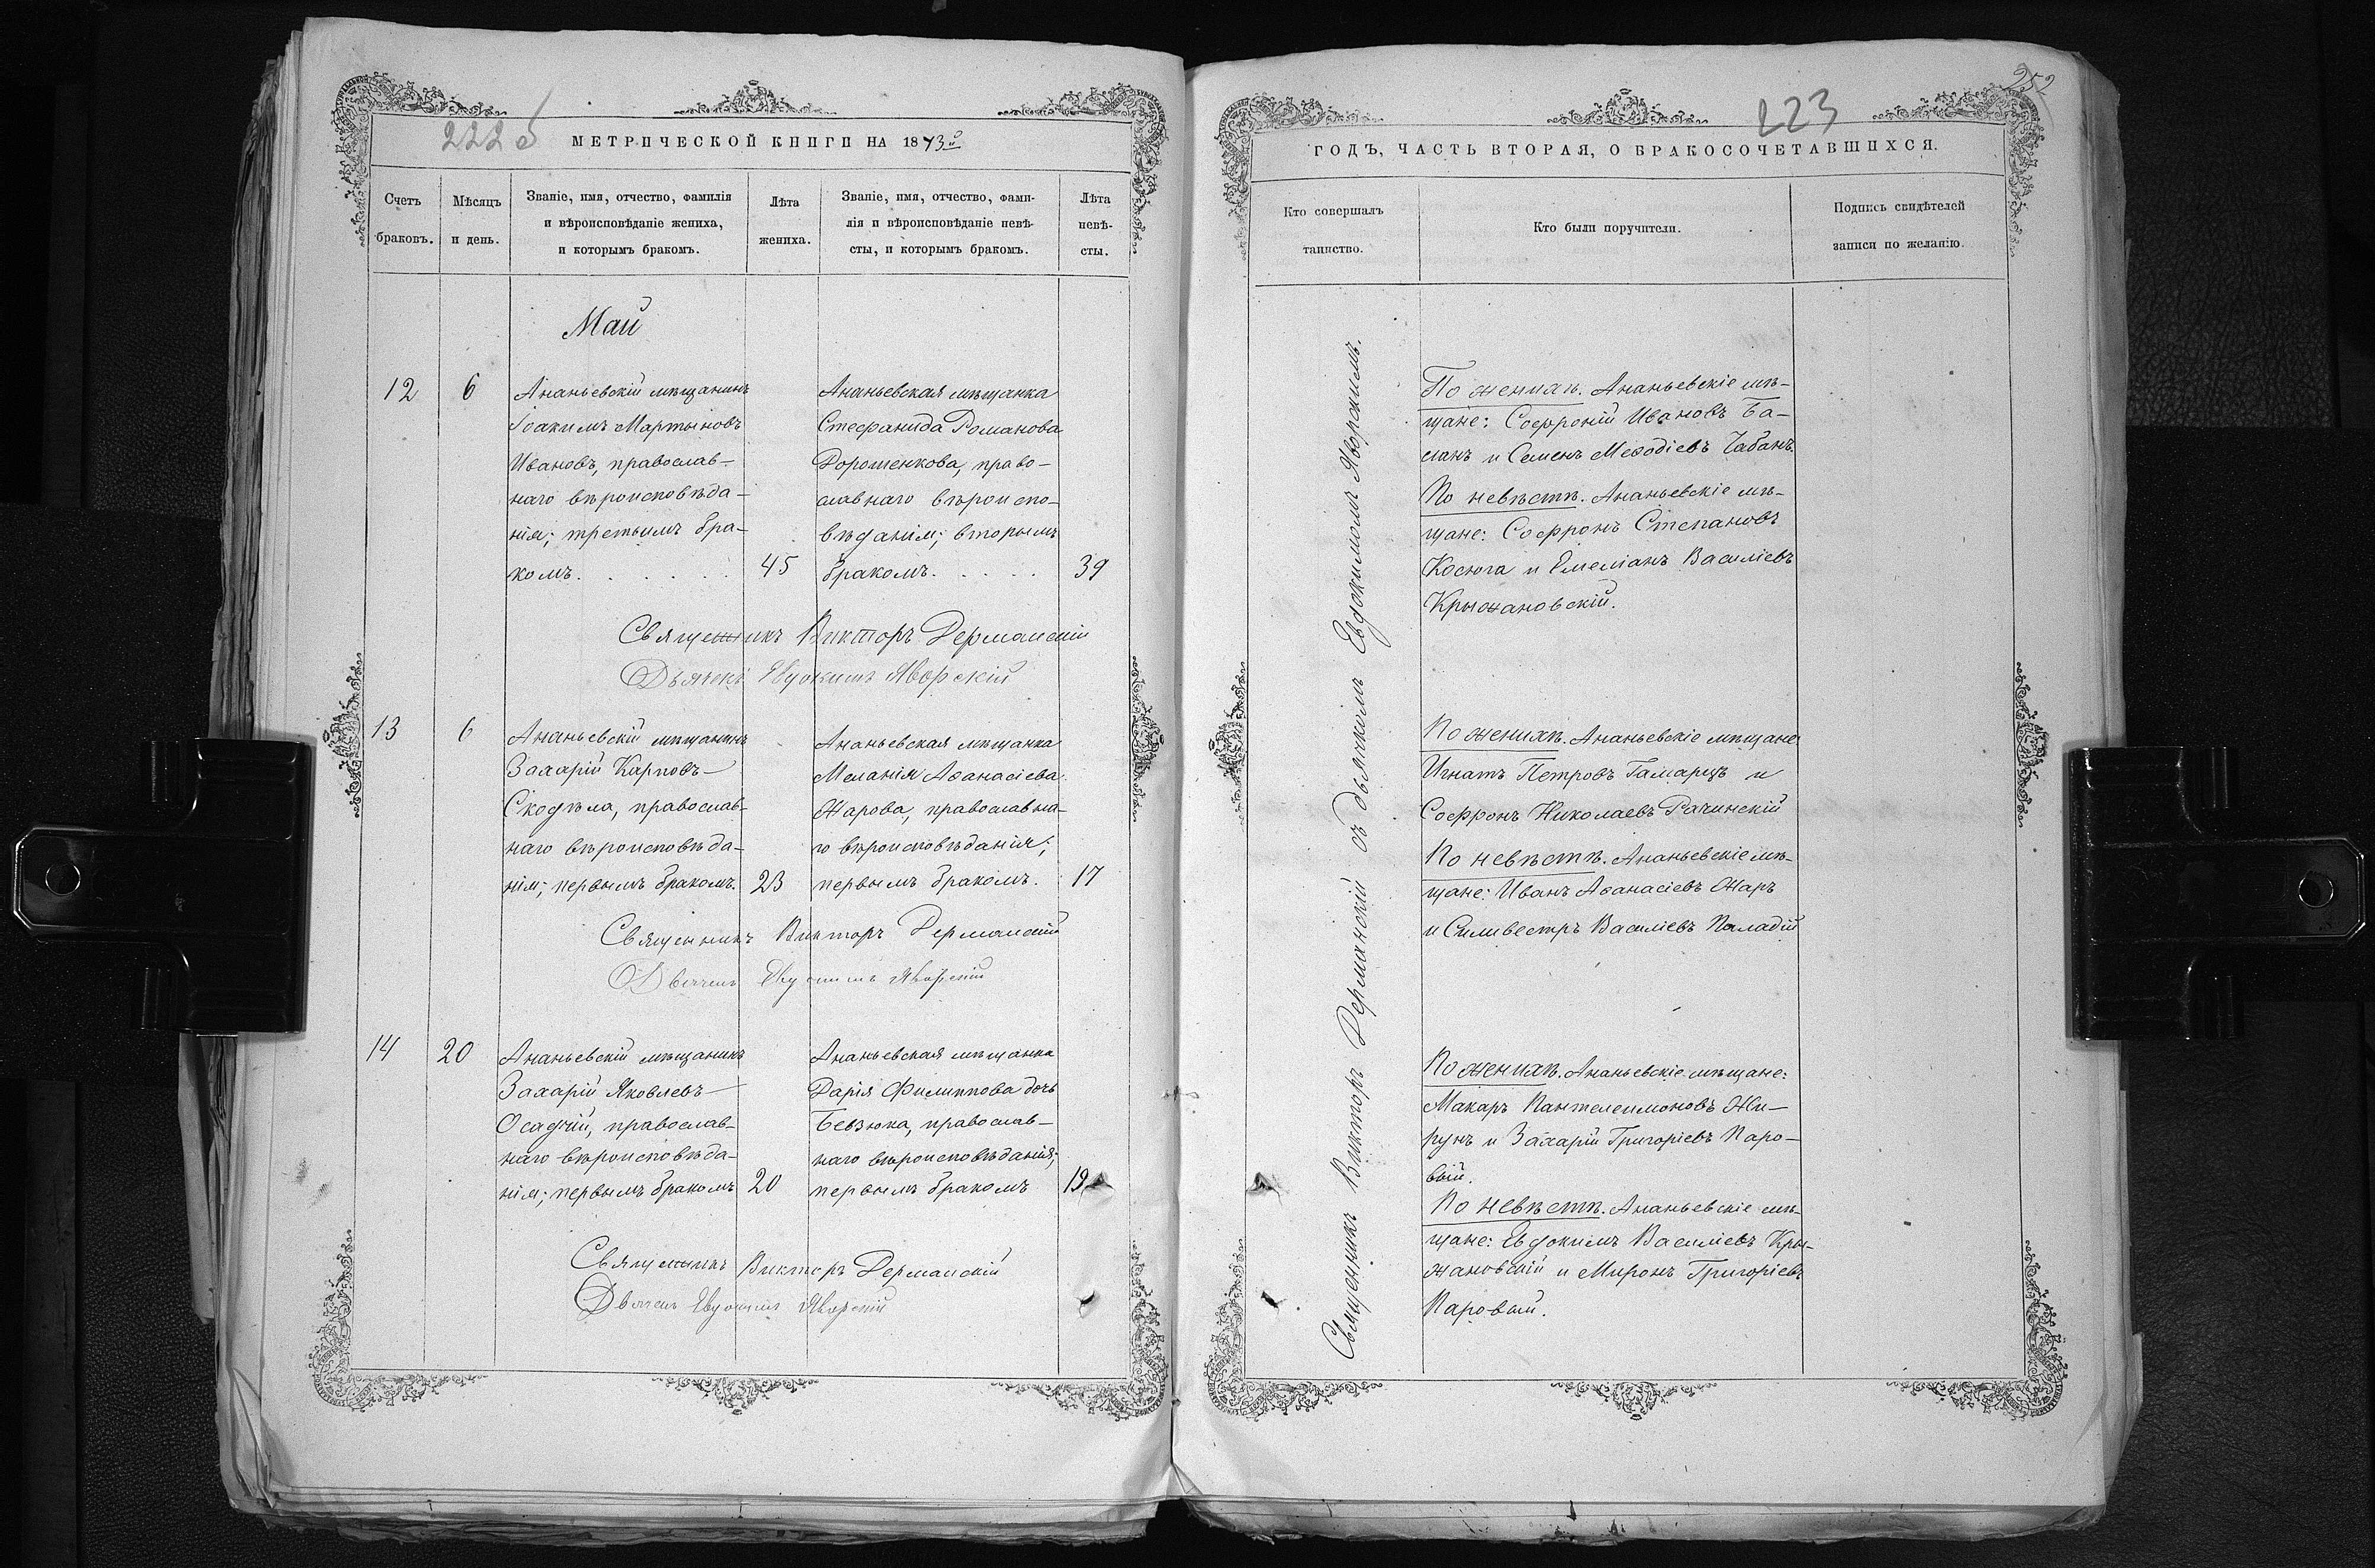 222 б
МЕТРИЧЕСКОЙ КНИГИ НА 1873й
Счетъ
браковъ.
Мѣсяцъ
и день.
Званіе, имя, отчество, фамилія
и вѣроисповѣданіе жениха,
и которымъ бракомъ.
Лѣта
жениха.
Званіе, имя, отчество, фами-
лія и вѣроисповѣданіе невѣ-
сты, и которымъ бракомъ.
Лѣта
невѣ-
сты.
Май
12
6
Ананьевскій мѣщанинъ
Іоакимъ Мартыновъ
Ивановъ, православ-
наго вѣроисповѣда-
нія; третьимъ бра-
комъ. . . . . .
45
Ананьевская мѣщанка
Стефанида Романова
Дорошенкова, право-
славнаго вѣроиспо-
вѣданія; вторымъ
бракомъ. . . . .
39
Священникъ Викторъ Дерманскій
Дьячекъ Евдокимъ Яворскій
13
6
Ананьевскій мѣщанинъ
Захарій Карповъ
Скодѣла, православ-
наго вѣроисповѣда-
нія; первымъ бракомъ.
23
Ананьевская мѣщанка
Меланія Аѳанасіева
Жарова, православна-
го вѣроисповѣданія;
первымъ бракомъ.
17
Священникъ Викторъ Дерманскій
Дьячекъ Евдокимъ Яворскій
14
20
Ананьевскій мѣщанинъ
Захарій Яковлевъ
Осадчій, православ-
наго вѣроисповѣда-
нія; первымъ бракомъ
20
Ананьевская мѣщанка
Дарія Филиппова дочь
Бевзюка, православ-
наго вѣроисповѣданія;
первымъ бракомъ
19
Священникъ Викторъ Дерманскій
Дьячекъ Евдокимъ Яворскій
252
223
ГОДЪ, ЧАСТЬ ВТОРАЯ, О БРАКОСОЧЕТАВШИХСЯ.
Кто совершалъ
таинство.
Кто были поручители.
Подпись свидѣтелей
записи по желанію.
Священникъ Викторъ Дерманскій съ дьячкомъ Евдокимомъ Яворскимъ.
По женихѣ. Ананьевскіе мѣ-
щане: Софроній Ивановъ Ба-
сланъ и Семенъ Меѳодіевъ Чабанъ.
По невѣстѣ. Ананьевскіе мѣ-
щане: Софронъ Степановъ
Косюга и Емеліанъ Василіевъ
Крыжановскій.
По женихѣ. Ананьевскіе мѣщане
Игнатъ Петровъ Гамарцъ и
Софронъ Николаевъ Рачинскій
По невѣстѣ. Ананьевскіе мѣ-
щане: Иванъ Аѳанасіевъ Жаръ
и Силивестръ Василіевъ Паладій
По женихѣ. Ананьевскіе мѣщане:
Макаръ Пантелеимоновъ Жи-
рунъ и Захарій Григоріевъ Паро-
вый.
По невѣстѣ. Ананьевскіе мѣ-
щане: Евдокимъ Василіевъ Кры-
жановскій и Миронъ Григоріевъ
Паровый.